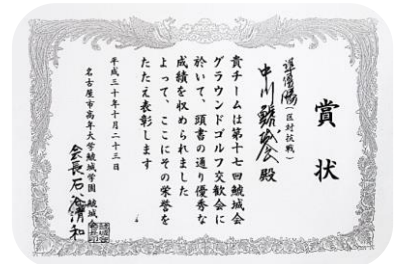 賞状
準優勝(区対抗戦)
中川鯱城会殿
貴チームは第十七回鯱城会
グラウンドゴルフ交歓会に
於いて、頭書の通り優秀な
成績を収められました
よって、ここにその栄誉を
たたえ表彰します
平成三十年十月二十三日
名古屋市高年大学鯱城学園 鯱城会
会長石
清和